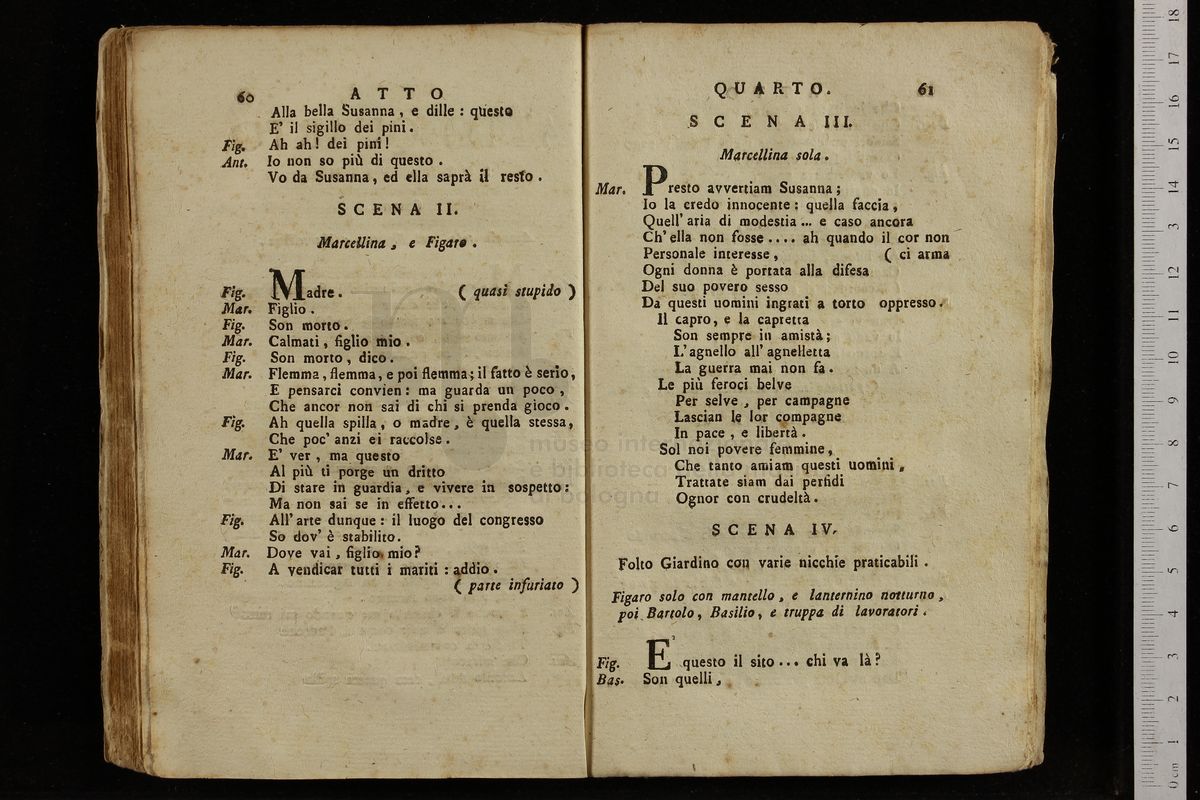 60 A T T O
Alla bella Susanna, e dille: questo
E' il sigillo dei pini.
Fig. Ah ah! dei pini!
Ant. Io non so più di questo.
Vo da Susanna, ed ella saprà il resto.
S C E N A II.
Marcellina, e Figaro.
Fig. Madre. ( quasi stupido )
Mar. Figlio.
Fig. Son morto.
Mar. Calmati, figlio mio.
Fig. Son morto, dico.
Mar. Flemma, flemma, e poi flemma; il fatto è serio,
E pensarci convien: ma guarda un poco,
Che ancor non sai di chi si prenda gioco.
Fig. Ah quella spilla, o madre, è quella stessa,
Che poc' anzi ei raccolse.
Mar. E' ver, ma questo
Al più ti porge un dritto
Di stare in guardia, e vivere in sospetto:
Ma non sai se in effetto...
Fig. All' arte dunque: il luogo del congresso
So dov' è stabilito.
Mar. Dove vai, figlio mio?
Fig. A vendicar tutti i mariti: addio.
( parte infuriato )
QUARTO. 61
S C E N A III.
Marcellina sola.
Mar. Presto avvertiam Susanna;
Io la credo innocente: quella faccia,
Quell' aria di modestia... e caso ancora
Ch' ella non fosse.... ah quando il cor non
Personale interesse, ( ci arma
Ogni donna è portata alla difesa
Del suo povero sesso
Da questi uomini ingrati a torto oppresso.
Il capro, e la capretta
Son sempre in amistà;
L' agnello all' agnelletta
La guerra mai non fa.
Le più feroci belve
Per selve, per campagne
Lascian le lor compagne
In pace, e libertà.
Sol noi povere femmine,
Che tanto amiam questi uomini,
Trattate siam dai perfidi
Ognor con crudeltà.
S C E N A IV.
Folto Giardino con varie nicchie praticabili.
Figaro solo con mantello, e lanternino notturno,
poi Bartolo, Basilio, e truppa di lavoratori.
Fig. E' questo il sito... chi va là?
Bas. Son quelli,